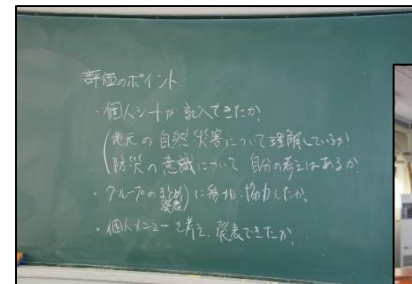 評価のポイント
・個人シートが記入できたか?
(地元の自然災害について理解しているか
防災の意識について 自分の考えはあるか
・グループのまとめ
発表)に参加、協力したか?
・個人メニューを考え、発表できたか?